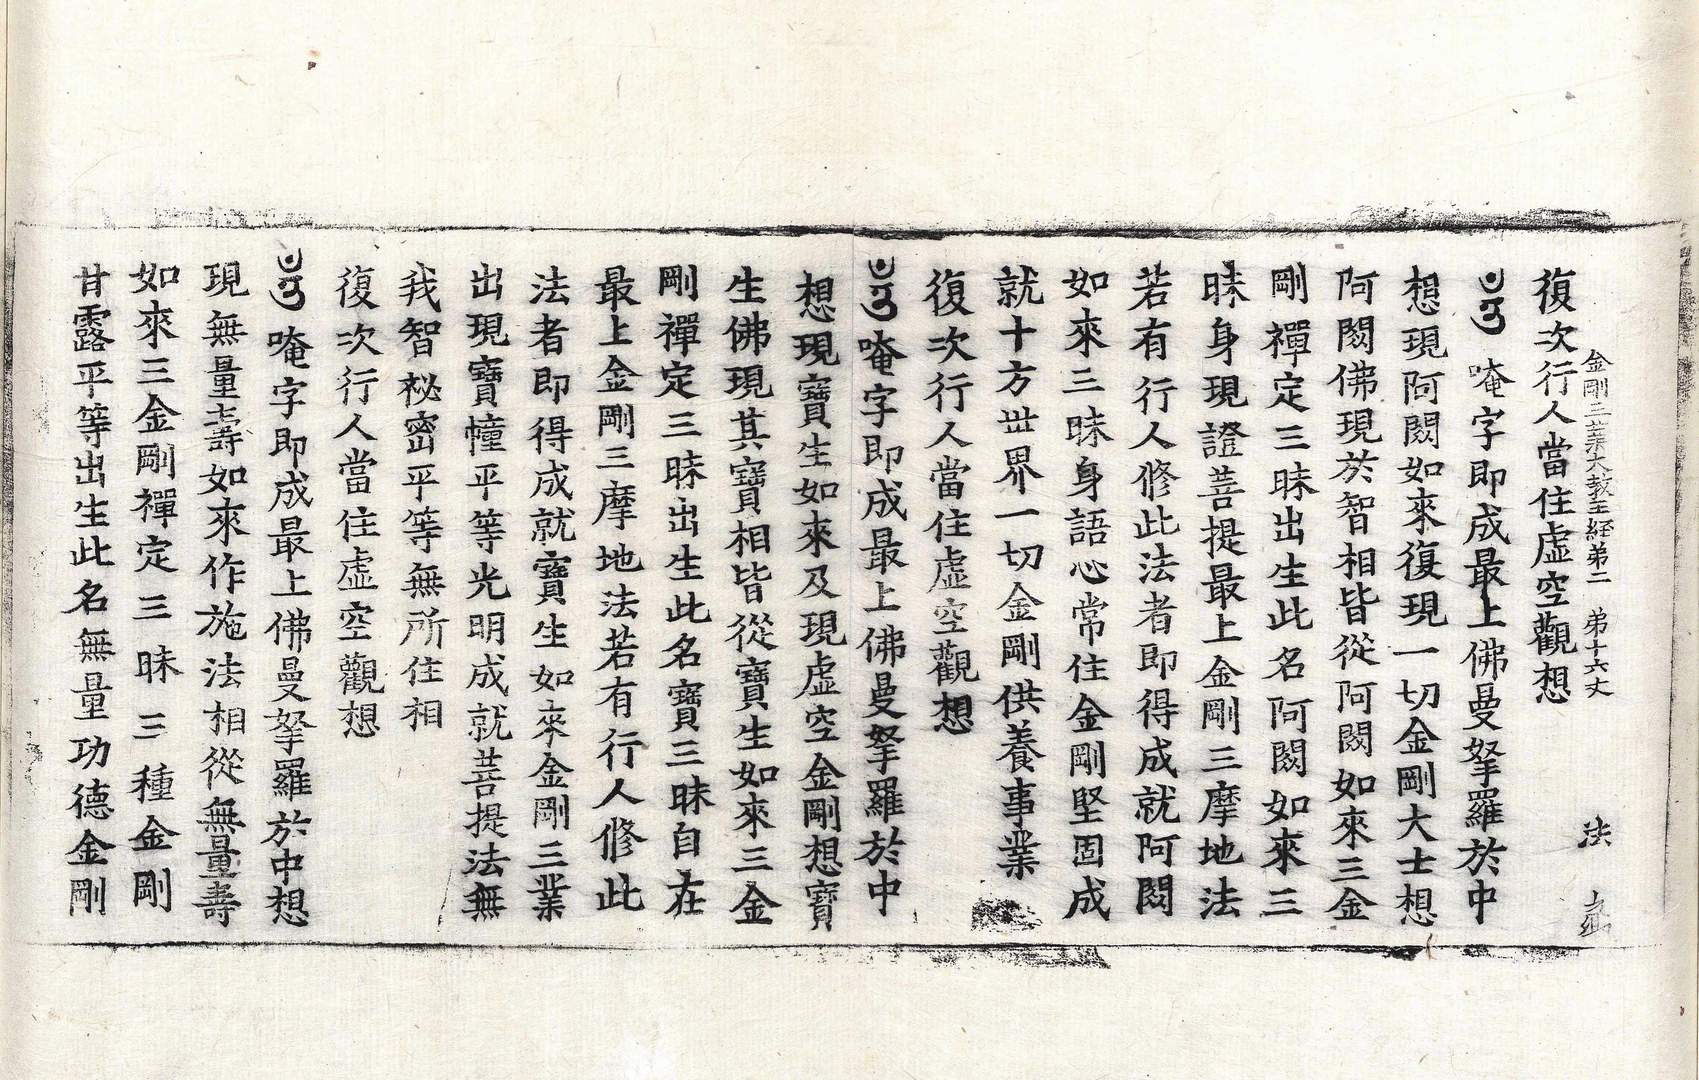 金剛三業大教王經第二 第十六丈 法
復次行人當住虛空觀想
ॐ 唵字即成最上佛曼拏羅於中
想現阿閦如來復現一切金剛大士想
阿閦佛現於智相皆從阿閦如來三金
剛禪定三昧出生此名阿閦如來三
昧身現證菩提最上金剛三摩地法
若有行人修此法者即得成就阿閦
如來三昧身語心常住金剛堅固成
就十方世界一切金剛供養事業
復次行人當住虛空觀想
ॐ 唵字即成最上佛曼拏羅於中
想現寶生如來及現虛空金剛想寶
生佛現其寶相皆從寶生如來三金
剛禪定三昧出生此名寶三昧自在
最上金剛三摩地法若有行人修此
法者即得成就寶生如來金剛三業
出現寶幢平等光明成就菩提法無
我智祕密平等無所住相
復次行人當住虛空觀想
ॐ 唵字即成最上佛曼拏羅於中想
現無量壽如來作施法相從無量壽
如來三金剛禪定三昧三種金剛
甘露平等出生此名無量功德金剛